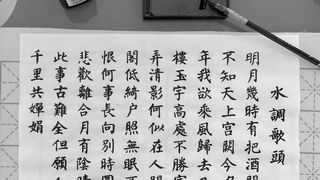 水調歌頭
明月幾時有把酒問
不知天上宮闕今夕
年我欲乘風歸去又
樓玉宇高處不勝寒
弄清影何似在人間
閣低綺戶照無眠不
恨何事長向別時圓
悲歡離合月有陰晴
此事古難全但願人
千里共嬋娟